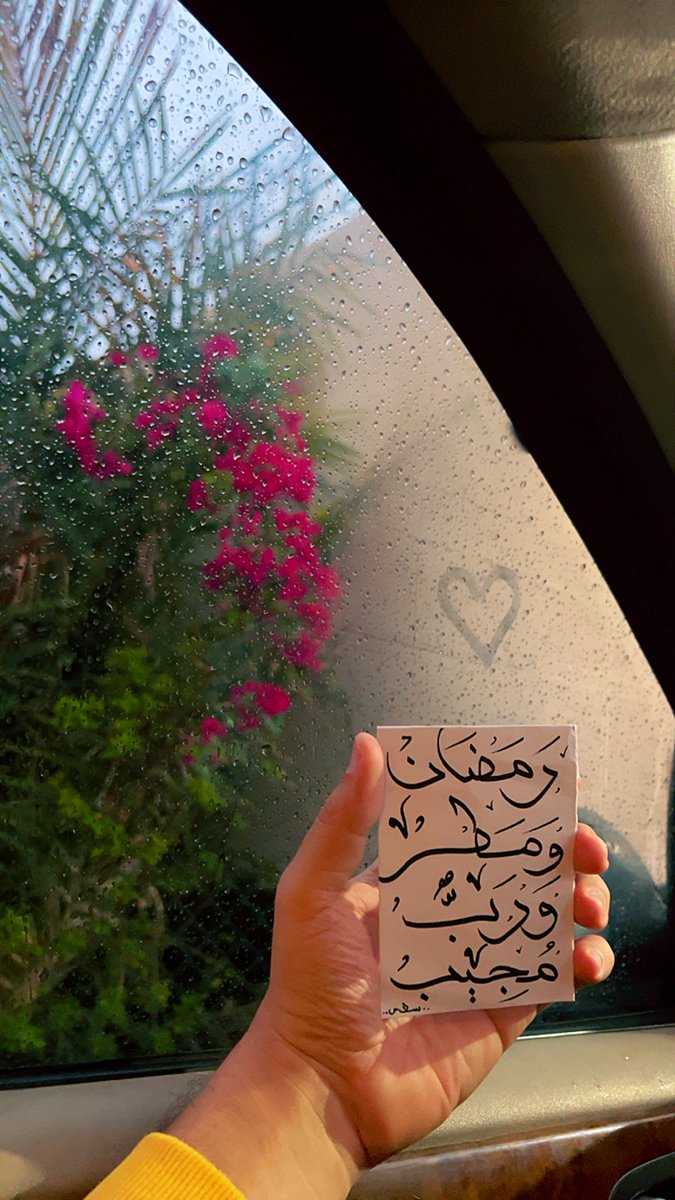 رَمَضَان
وَمَطر
وَرَبٌّ
مُجِيب